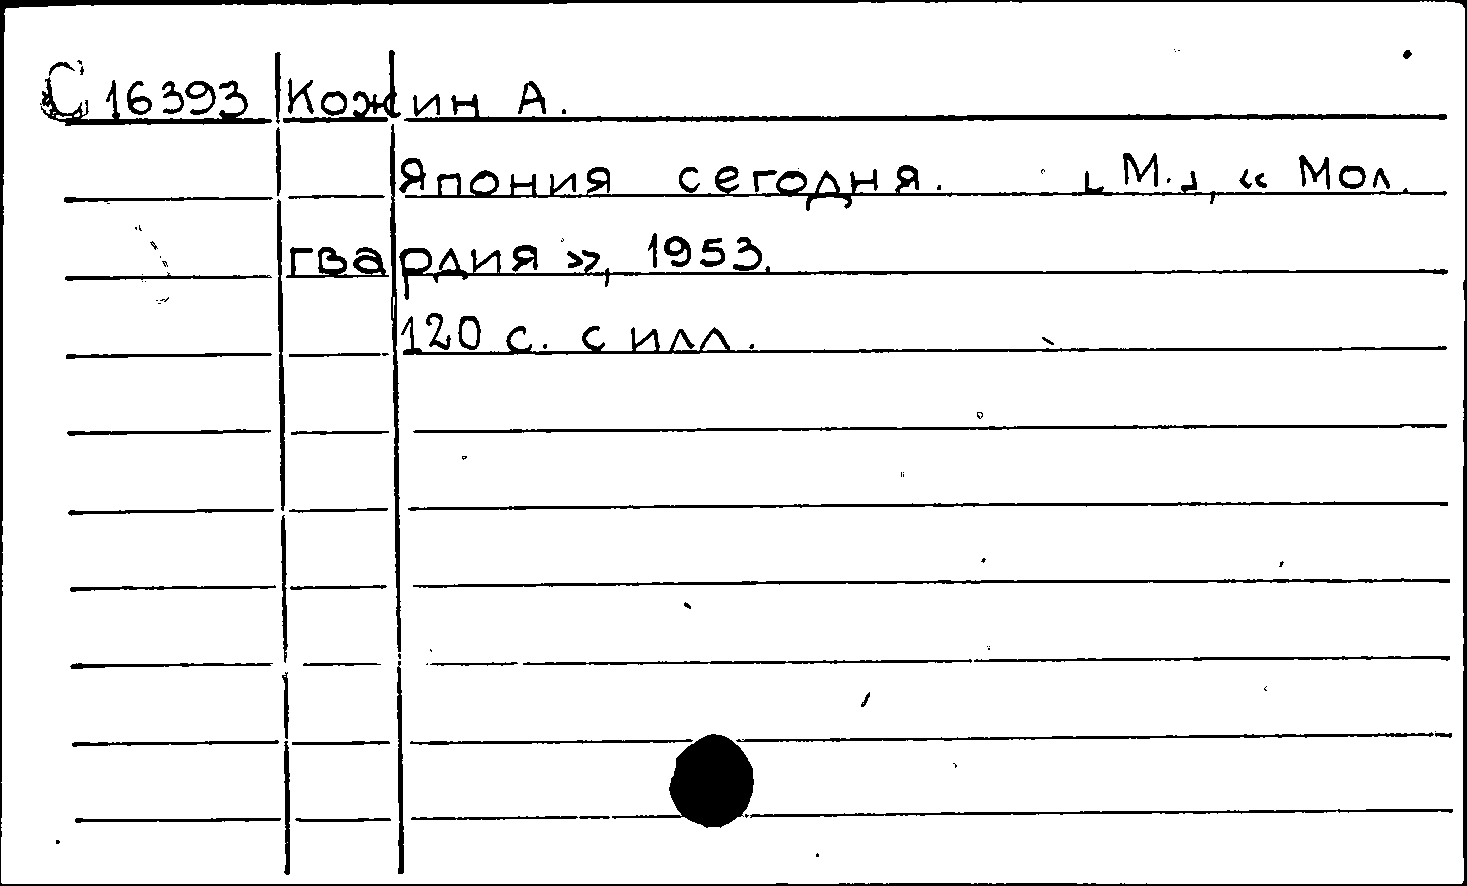 С 16393 Кожин А.
Япония сегодня. [М.], «Мол.
гвардия», 1953.
120 с. с илл.